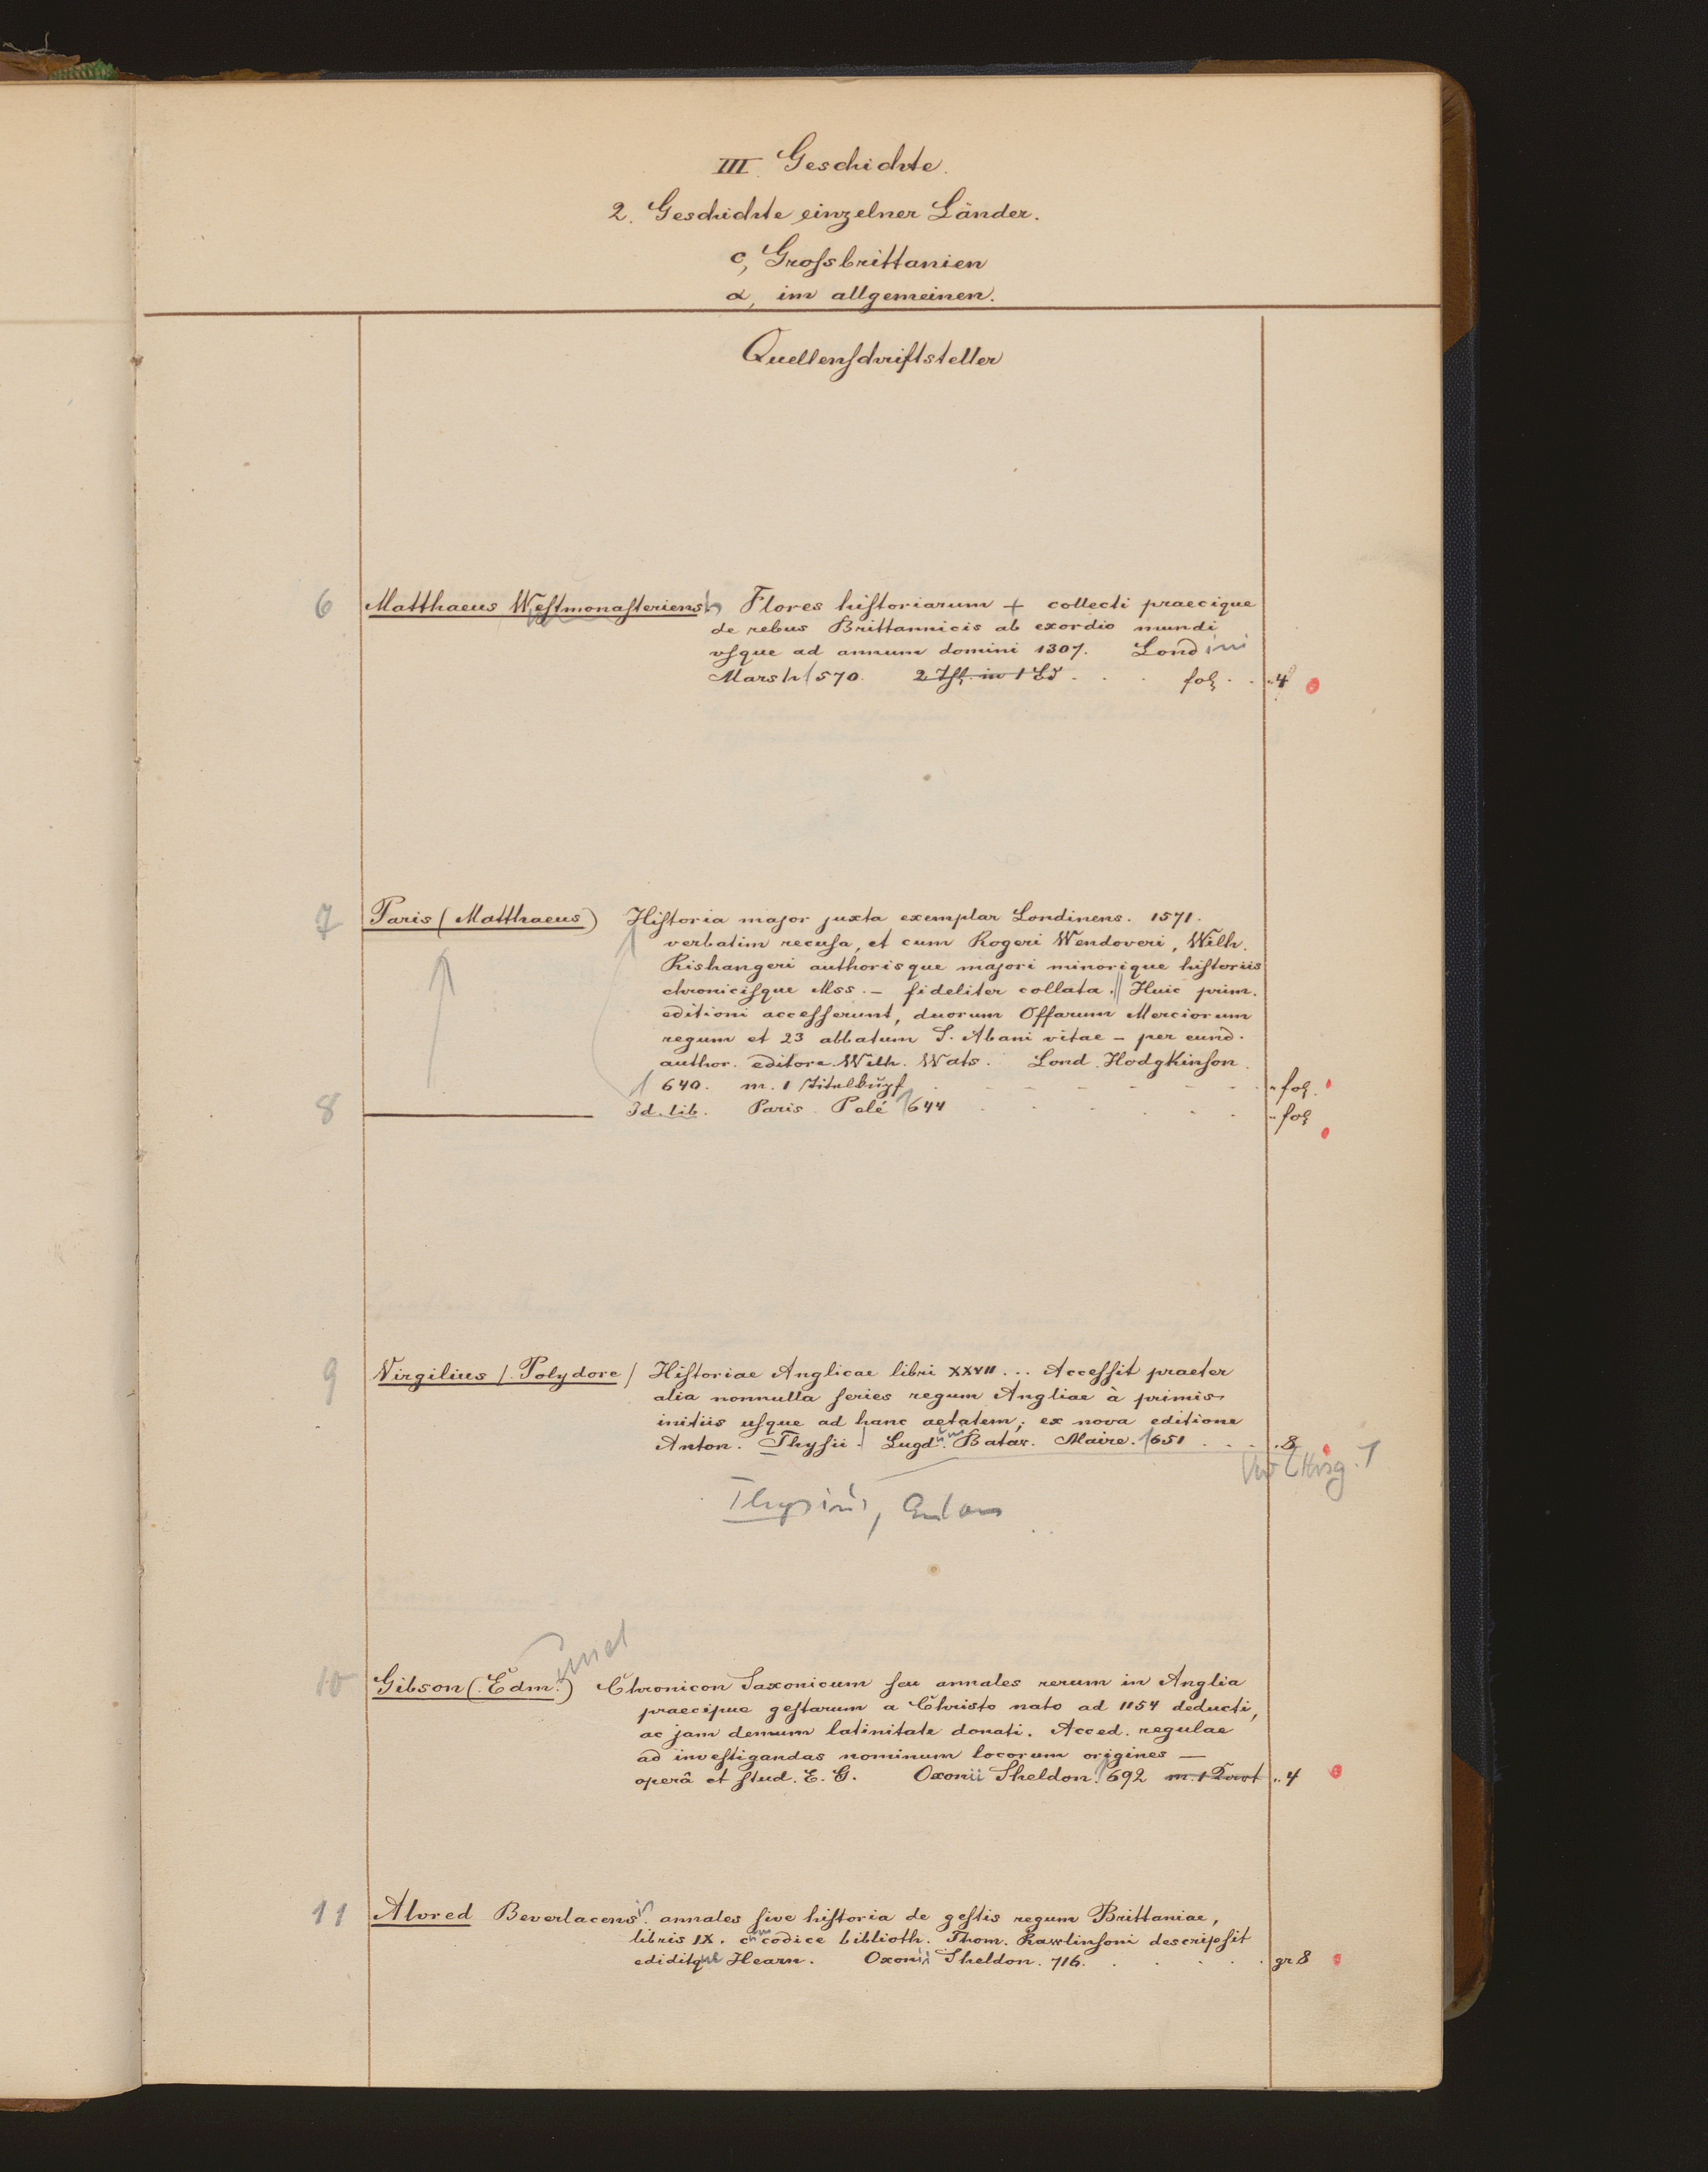 III. Geschichte.
2. Geschichte einzelner Länder.
c, Grossbrittanien
α, im allgemeinen.
Quellenschriftsteller
6 Matthaeus Westmonasteriens Flores historiarum + collecti praecique
de rebus Brittannicis ab exordio mundi
vsque ad annum domini 1307. Londini
Marsh 1570. 2 in 1 Bd. fol. 4
7 Paris (Matthaeus) Historia major juxta exemplar Londinens. 1571.
verbatim recusa, et cum Rogeri Wendoveri, Wilh.
Rishangeri authorisque majori minorique historiis
chronicisque Mss. – fideliter collata. || Huic prim.
editioni accesserunt, duorum Offarum Merciorum
regum et 23 abbatum S. Abani vitae – per eund.
author. editore Wilh. Wats. Lond. Hodgkinson.
1640. m. 1 Titelkupf. fol.
8 ——— Id. lib. Paris. Pelé 1644 fol.
9 Virgilius /. Polydore / Historiae Anglicae libri XXVII ... Accessit praeter
alia nonnulla series regum Angliae à primis
initiis usque ad hanc aetatem; ex nova editione
Anton. Thysii. Lugdun. Batav. Maire. 1651 . . . 8
Thysius, Anton
10 Gibson (. Edm.) Chronicon Saxonicum seu annales rerum in Anglia
praecipue gestarum a Christo nato ad 1154 deducti,
ac jam demum latinitate donati. Acced. regulae
ad investigandas nominum locorum origines —
operâ et stud. E. G. Oxonii Sheldon. 1692 m. 1 4
11 Alvred Beverlacensis. annales sive historia de gestis regum Brittaniae,
libris IX. codice biblioth. Thom. Rawlinsoni descripsit
ediditque Hearn. Oxonii Sheldon. 716. gr 8